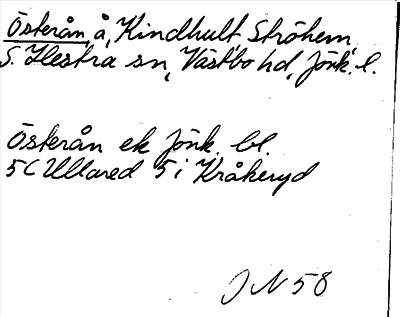 Österån, å, Kindhult Ströhem,
S. Hestra sn, Västbo hd, Jönk. l.
Österån ek Jönk. bl.
5C Ullared 5 i Kråkeryd
JN 58